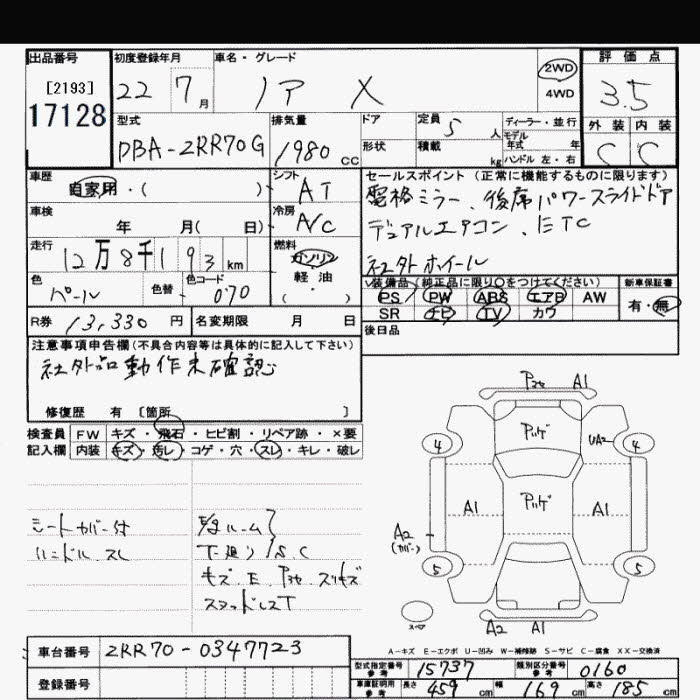 出品番号
[2193]
17128
初度登録年月
22 7 月
車名・グレード
ノア X
2WD
4WD
評価点
3.5
外装 内装
C C
型式
DBA-ZRR70G
排気量
1980 CC
ドア
形状
定員 5 人
積載 kg
ディーラー・並行
モデル年式 年
ハンドル 左・右
車歴
自家用・( )
シフト
AT
セールスポイント (正常に機能するものに限ります)
電格ミラー、後席パワースライドドア
デュアルエアコン、ETC
社外ホイール
車検
年 月( 日)
冷房
A/C
走行
12万8千193 km
燃料
ガソリン
軽・油
( )
色
パール
色替
色コード
070
装備品(純正品に限り○をつけてください)
PS PW ABS エアB AW
SR ナビ TV カワ
新車保証書
有・無
R券 13,330 円
名変期限 月 日
後日品
注意事項申告欄(不具合内容等は具体的に記入して下さい)
社外品動作未確認
修復歴 有 [箇所 ]
検査員
記入欄
FW キズ・飛石・ヒビ割・リペア跡・×要
内装 キズ・汚レ・コゲ・穴・スレ・キレ・破レ
シートカバー付
ハンドルスレ
ルーム
下廻り S C
キズ.E.
スタッドレスT
A1
4
UA2
4
A1
A1
A2
(カバー)
5
5
スペア
A2 A1
A-キズ E-エクボ U-凹み W-補修跡 S-サビ C-腐食 XX-交換済
車台番号 ZRR70-0347723
登録番号
型式指定番号
参考
15737
類別区分番号
参考
0160
車庫証明用
参考
長さ 459 cm 幅 169 cm 高さ 185 cm